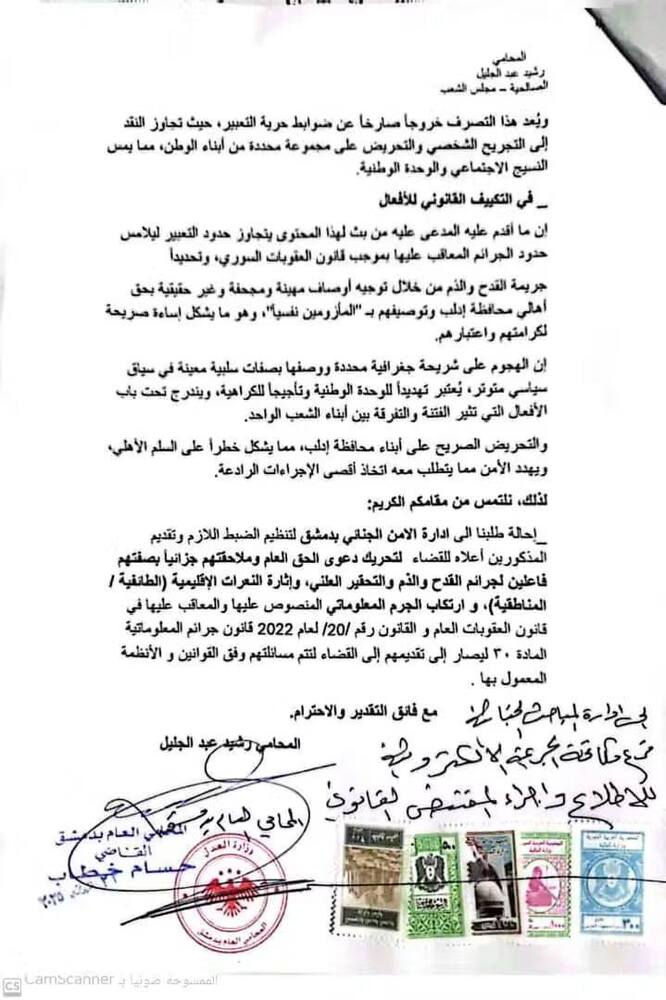 المحامي
رشيد عبد الجليل
الصالحية – مجلس الشعب
ويُعد هذا التصرف خروجاً صارخاً عن ضوابط حرية التعبير، حيث تجاوز النقد
إلى التجريح الشخصي والتحريض على مجموعة محددة من أبناء الوطن، مما يمس
النسيج الاجتماعي والوحدة الوطنية.
_ في التكييف القانوني للأفعال
إن ما أقدم عليه المدعى عليه من بث لهذا المحتوى يتجاوز حدود التعبير ليلامس
حدود الجرائم المعاقب عليها بموجب قانون العقوبات السوري، وتحديداً
جريمة القدح والذم من خلال توجيه أوصاف مهينة ومجحفة وغير حقيقية بحق
أهالي محافظة إدلب وتوصيفهم بـ "المأزومين نفسياً"، وهو ما يشكل إساءة صريحة
لكرامتهم واعتبارهم.
إن الهجوم على شريحة جغرافية محددة ووصفها بصفات سلبية معينة في سياق
سياسي متوتر، يُعتبر تهديداً للوحدة الوطنية وتأجيجاً للكراهية، ويندرج تحت باب
الأفعال التي تثير الفتنة والتفرقة بين أبناء الشعب الواحد.
والتحريض الصريح على أبناء محافظة إدلب، مما يشكل خطراً على السلم الأهلي،
ويهدد الأمن مما يتطلب معه اتخاذ أقصى الإجراءات الرادعة.
لذلك، نلتمس من مقامكم الكريم:
_إحالة طلبنا الى ادارة الامن الجنائي بدمشق لتنظيم الضبط اللازم وتقديم
المذكورين أعلاه للقضاء لتحريك دعوى الحق العام وملاحقتهم جزائياً بصفتهم
فاعلين لجرائم القدح والذم والتحقير العلني، وإثارة النعرات الإقليمية (الطائفية /
المناطقية)، و ارتكاب الجرم المعلوماتي المنصوص عليها والمعاقب عليها في
قانون العقوبات العام و القانون رقم /20/ لعام 2022 قانون جرائم المعلوماتية
المادة ٣٠ ليصار إلى تقديمهم إلى القضاء لتتم مسائلتهم وفق القوانين و الأنظمة
المعمول بها .
مع فائق التقدير والاحترام.
المحامي رشيد عبد الجليل
إلى إدارة المباحث الجنائية
فرع مكافحة الجريمة الالكترونية
للاطلاع وإجراء المقتضى القانوني
المحامي العام بدمشق
المحامي العام بدمشق
القاضي
حسام خطاب
وزارة العدل
المحامي العام بدمشق
٣٠٠
١٠٠٠
الممسوحة ضوئيا بـ CamScanner
CS